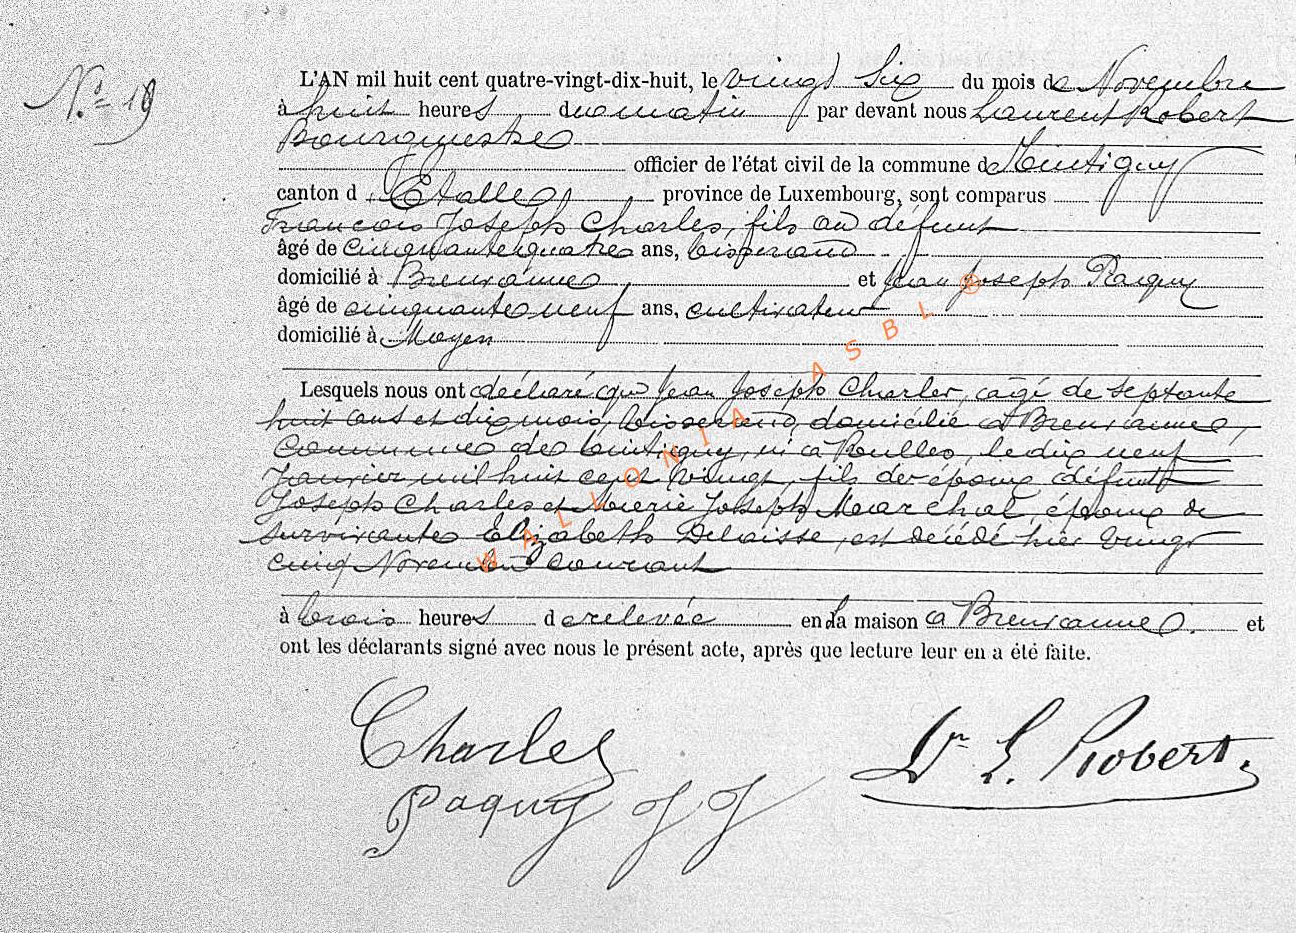 N.° 19
L'AN mil huit cent quatre-vingt-dix-huit, le vingt six du mois de Novembre
à huit heures du matin par devant nous Laurent Robert
Bourgmestre
officier de l'état civil de la commune de Tintigny
canton d'Etalle province de Luxembourg, sont comparus
François Joseph Charles, fils au défunt
âgé de cinquante quatre ans, tisserand
domicilié à Breuvanne et Jean Joseph Paquy
âgé de cinquante neuf ans, cultivateur
domicilié à Moyen
Lesquels nous ont déclaré que Jean Joseph Charles, âgé de septante
huit ans et dix mois, tisserand, domicilié à Breuvanne,
Commune de Tintigny, né à Rulles, le dix neuf
Janvier mil huit cent vingt, fils des époux défunts
Joseph Charles et Marie Joseph Marchal, époux de
survivante Elizabeth Delaisse, est décédé hier vingt
cinq Novembre courant
à trois heures de relevée en sa maison à Breuvanne. et
ont les déclarants signé avec nous le présent acte, après que lecture leur en a été faite.
Charles
Paquy J J
Dr L. Robert.
WALLONIA ASBL ®